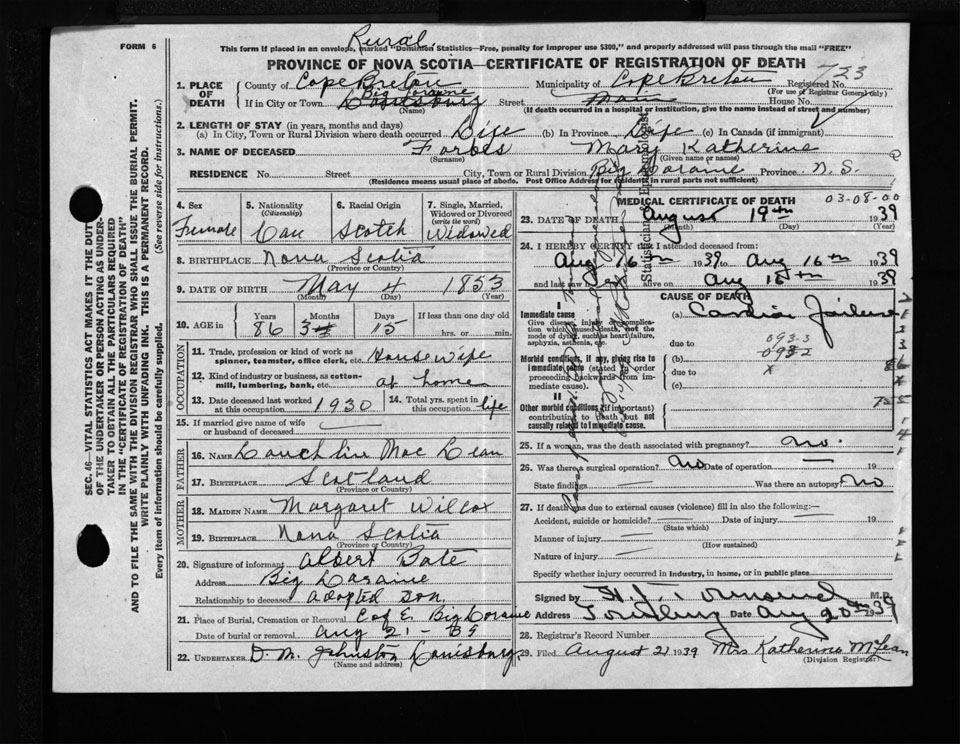 Rural
FORM 6
This form if placed in an envelope, marked "Dominion Statistics—Free, penalty for improper use $300," and properly addressed will pass through the mail "FREE"
PROVINCE OF NOVA SCOTIA—CERTIFICATE OF REGISTRATION OF DEATH
723
1. PLACE OF DEATH County of Cape Breton Municipality of Cape Breton Registered No.
(For use of Registrar General only)
Big Loraine
If in City or Town Louisburg Street Main House No.
(Name) (If death occurred in a hospital or institution, give the name instead of street and number)
2. LENGTH OF STAY (in years, months and days)
(a) In City, Town or Rural Division where death occurred Life (b) In Province Life (c) In Canada (if immigrant)
3. NAME OF DECEASED Forbes Mary Katherine
(Surname) (Given name or names)
RESIDENCE No. Street City, Town or Rural Division Big Loraine Province N.S.
(Residence means usual place of abode. Post Office Address for residents in rural parts not sufficient)
4. Sex Female
5. Nationality (Citizenship) Can
6. Racial Origin Scotch
7. Single, Married, Widowed or Divorced (write the word) Widowed
8. BIRTHPLACE Nova Scotia
(Province or Country)
9. DATE OF BIRTH May 4 1853
(Month) (Day) (Year)
10. AGE in Years Months Days If less than one day old
86 3 15 hrs. or min.
OCCUPATION
11. Trade, profession or kind of work as spinner, teamster, office clerk, etc. Housewife
12. Kind of industry or business, as cotton-mill, lumbering, bank, etc. at home
13. Date deceased last worked at this occupation 1930
14. Total yrs. spent in this occupation life
15. If married give name of wife or husband of deceased —
FATHER
16. NAME Lauchlin Mac Lean
17. BIRTHPLACE Scotland
(Province or Country)
MOTHER
18. MAIDEN NAME Margaret Wilcox
19. BIRTHPLACE Nova Scotia
(Province or Country)
20. Signature of informant Albert Bate
Address Big Loraine
Relationship to deceased adopted son
21. Place of Burial, Cremation or Removal C of E Big Loraine
Date of burial or removal Aug 21 - 39
22. UNDERTAKER D. M. Johnston Louisburg
(Name and address)
MEDICAL CERTIFICATE OF DEATH 03-08-00
23. DATE OF DEATH August 19th 1939
(Month) (Day) (Year)
24. I HEREBY CERTIFY that I attended deceased from:
Aug 16th 1939 to Aug 16th 1939
and last saw h alive on Aug 16th 1939
CAUSE OF DEATH
Immediate cause (a) Cardiac Failure
Give disease, injury or complication which caused death, not the mode of dying, such as heart failure, asphyxia, asthenia, etc.
due to 093-3
Morbid conditions, if any, giving rise to immediate cause (stated in order proceeding backwards from immediate cause).
(b) 0932
due to
(c)
Other morbid conditions (if important) contributing to death but not causally related to immediate cause.
25. If a woman, was the death associated with pregnancy? no.
26. Was there a surgical operation? no Date of operation — 19
State findings — Was there an autopsy? no
27. If death was due to external causes (violence) fill in also the following:—
Accident, suicide or homicide? — Date of injury — 19
(State which)
Manner of injury —
(How sustained)
Nature of injury —
Specify whether injury occurred in industry, in home, or in public place
Signed by M.D.
Address Date Aug 20th 1939
28. Registrar's Record Number
29. Filed August 21 1939 Mrs Katherine McLean
(Division Registrar)
SEC. 46—VITAL STATISTICS ACT MAKES IT THE DUTY
OF THE UNDERTAKER OR PERSON ACTING AS UNDER-
TAKER TO OBTAIN ALL THE PARTICULARS REQUIRED
IN THE "CERTIFICATE OF REGISTRATION OF DEATH"
AND TO FILE THE SAME WITH THE DIVISION REGISTRAR WHO SHALL ISSUE THE BURIAL PERMIT.
WRITE PLAINLY WITH UNFADING INK. THIS IS A PERMANENT RECORD.
Every item of information should be carefully supplied. (See reverse side for instructions.)